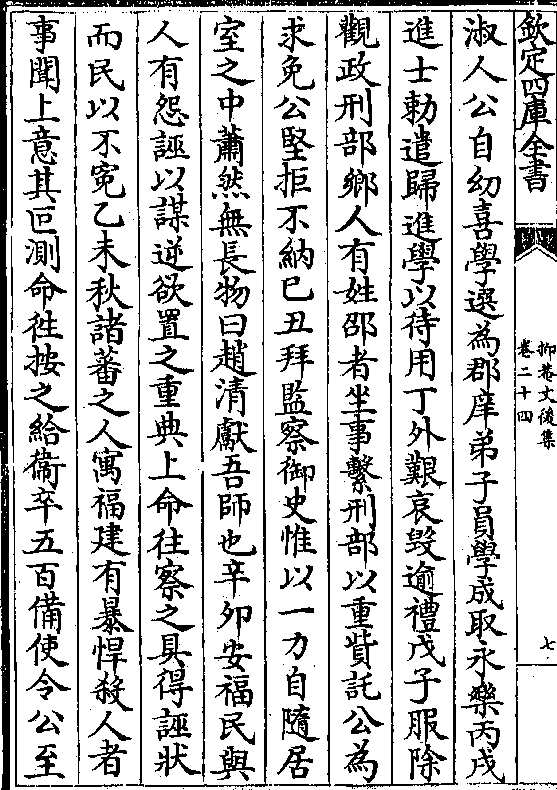 欽定四庫全書
抑菴文後集
卷二十四
七
淑人公自幼喜學選為郡庠弟子員學成取永樂丙戌
進士勅遣歸進學以待用丁外艱哀毀逾禮戊子服除
觀政刑部鄉人有姓邵者坐事繫刑部以重貲託公為
求免公堅拒不納已丑拜監察御史惟以一力自隨居
室之中蕭然無長物曰趙清獻吾師也辛卯安福民與
人有怨誣以謀逆欲置之重典上命往察之具得誣狀
而民以不寃乙未秋諸蕃之人寓福建有暴悍殺人者
事聞上意其叵測命徃按之給衞卒五百備使令公至